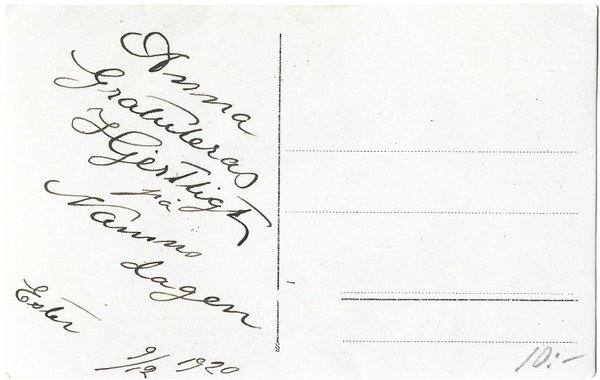 Anna
Gratuleras
Hjertligt
på
Namns
dagen
Ester
9/12 1920
10:-